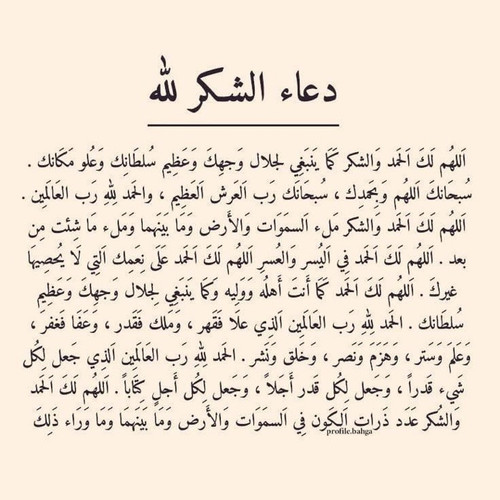 دعاء الشكر لله
اَللهُم لَكَ اَلحَمد وَالشكر كَمَا يَنبَغِي لجلال وَجهِكَ وَعَظِيم سُلطَانِك وَعُلو مَكَانك .
سُبحَانكَ اَللهُم وَبَحمدِك ، سُبحَانَك رَب اَلعَرش اَلعَظِيم ، والحَمد لِلهِ رَب العَالَمِين .
اَللهُم لكَ اَلحَمد وَالشكر مَلء اَلسمَوَات وَالأَرض وَمَا بَينَهما وَمَلء مَا شئت مِن
بعد . اَللهُم لكَ اَلحَمد فِي اَليُسر وَالعُسرِ اللهُم لكَ اَلحَمد عَلَى نِعَمِك اَلتِي لَا يُحصِيهَا
غيركَ . اَللهُم لَك اَلحَمَد كَمَا أَنتَ أَهلُه وَوَلِيه وَكمَا يَنبَغِي لِجلال وَجهِكَ وعَظِيم
سُلطَانك . الحَمد لِلهِ رَب العَالَمِين اَلذِي علَا فَقَهر ، وَمَلكَ فَقَدر ، وَعَفَا فَغفَر ،
وَعَلِم وَستَر ، وَهَزَم وَنَصر ، وَخَلق وَنَشر . الحمد لِلهِ رَب العَالَمِين اَلذِي جَعل لِكُل
شَيء قَدراً ، وَجعل لِكُل قَدر أَجَلاً ، وَجَعل لِكُل أَجلٍ كِتَاباً . اَللهُم لَكَ اَلحَمَد
وَالشُكر عَدَد ذَراتِ اَلكَون فِي اَلسمَوَات وَالأَرض وَمَا بَينَهما وَمَا وَرَاء ذَلِكَ
profile.bahga